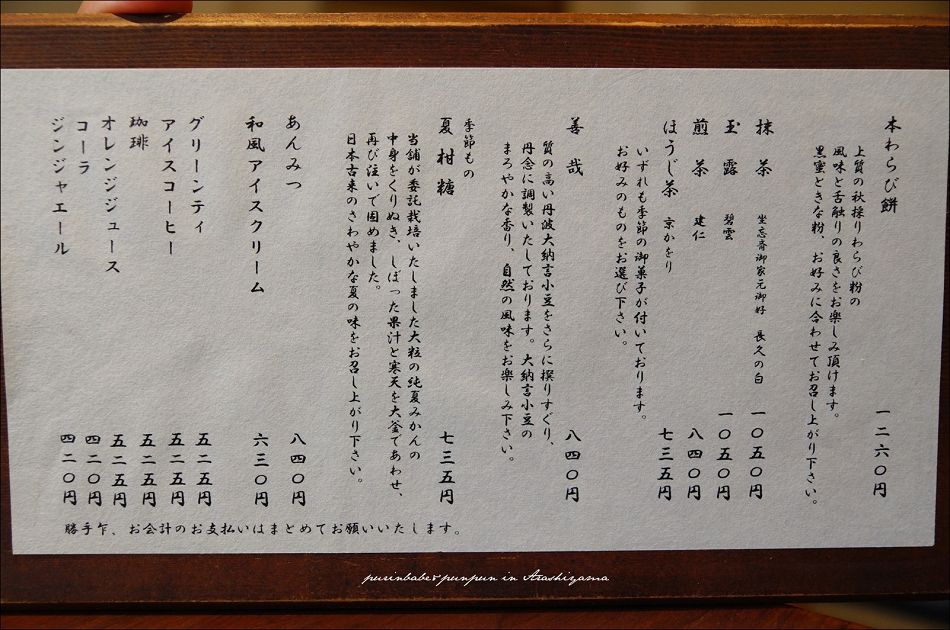 本わらび餅　一二六〇円
上質の秋採りわらび粉の
風味と舌触りの良さをお楽しみ頂けます。
黒蜜ときな粉、お好みに合わせてお召し上がり下さい。
抹茶　坐忘斎御家元御好　長久の白　一〇五〇円
玉露　碧雲　一〇五〇円
煎茶　建仁　八四〇円
ほうじ茶　京かをり　七三五円
いずれも季節の御菓子が付いております。
お好みのものをお選び下さい。
善哉　八四〇円
質の高い丹波大納言小豆をさらに撰りすぐり、
丹念に調製いたしております。大納言小豆の
まろやかな香り、自然の風味をお楽しみ下さい。
季節もの
夏柑糖　七三五円
当舗が委託栽培いたしました大粒の純夏みかんの
中身をくりぬき、しぼった果汁と寒天を大釜であわせ、
再び注いで固めました。
日本古来のさわやかな夏の味をお召し上がり下さい。
あんみつ　八四〇円
和風アイスクリーム　六三〇円
グリーンティ　五二五円
アイスコーヒー　五二五円
珈琲　五二五円
オレンジジュース　五二五円
コーラ　四二〇円
ジンジャエール　四二〇円
勝手乍、お会計のお支払いはまとめてお願いいたします。
purinbabe&punpun in Arashiyama